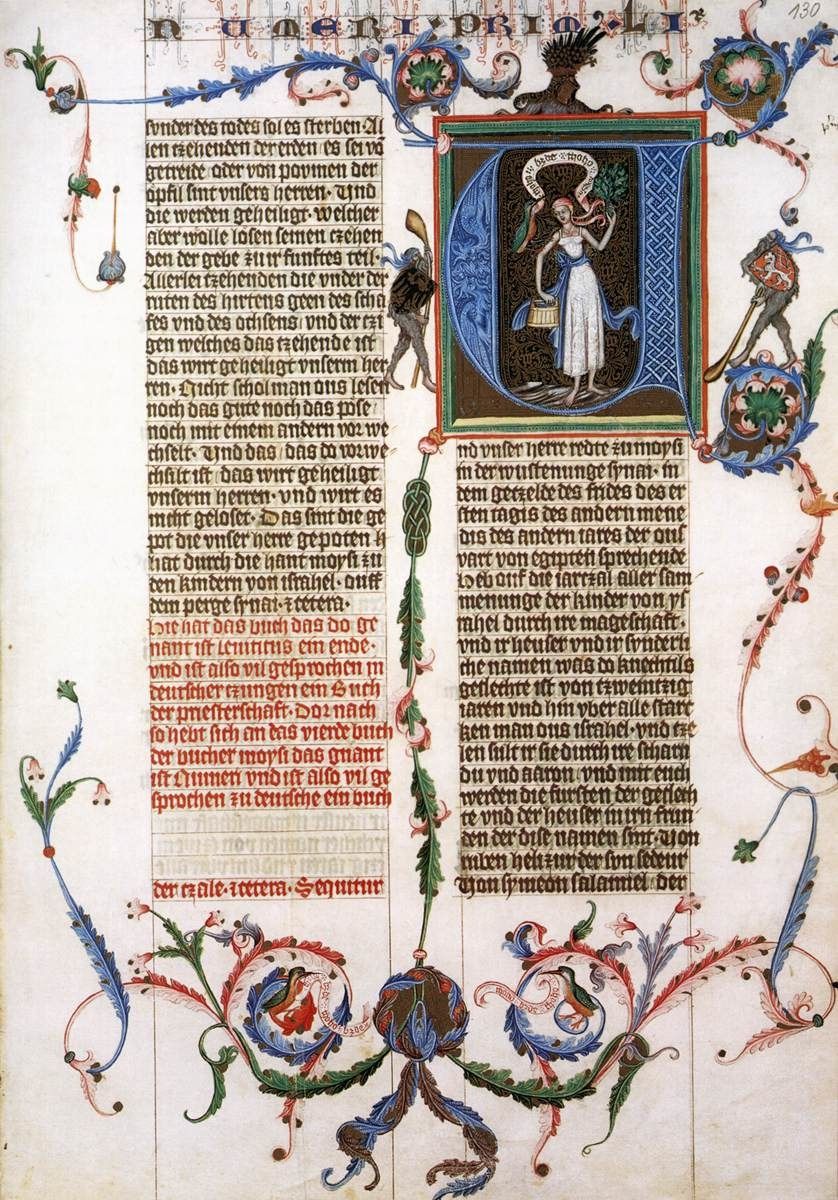 NUMERI · PRIM · LI
130
sunder des todes sol es sterben· Al
len czehenden der erden es sei võ
getreide oder von povmen der
opfil sint vnsers herren· Vnd
die werden geheiligt· welcher
aber wolle losen seinen czehen
den der gebe zu ir funftes teil·
Allerlei czehenden die vnder der
ruten des hirtens geen des scha
fes vnd des ochsens· vnd der czi
gen welches das czehende ist
das wirt geheiligt vnserm her
ren· Nicht schol man ous lesen
noch das gute noch das pose
noch mit einem andern vor we
chselt· Vnd das· das do vorwe
chsilt ist· das wirt geheiligt
vnserm herren· vnd wirt es
nicht geloset· Das sint die ge
pot die vnser herre gepoten h
hat durch die hant moysi zu
den kindern von israhel· ouff
dem perge synai· &tetera·
Hie hat das buch das do ge
nant ist leuiticus ein ende·
vnd ist also vil gesprochen in
deutscher tzungen ein Buch
der priesterschaft· Dor nach
so hebt sich an das vierde buch
der bucher moysi das gnant
ist Numeri vnd ist also vil ge
sprochen zu deutsche ein buch
der czale· &tetera· Sequitur
nd vnser herre redte zu moysi
in der wustenunge synai· in
dem getzelde des frides des er
sten tagis des andern mene
dis des andern iares der ous
vart von egipten sprechende
Heb ouf die iartzal aller sam
menunge der kinder von ys
rahel durch ire mageschaft·
vnd ir heuser vnd ir synderli
che namen was do knechtils
geslechte ist von tzweintzig
iaren vnd hin vber alle starc
ken man ous israhel· vnd tze
len sult ir sie durch ire scharn
du vnd aaron· vnd mit euch
werden die fursten der geslech
te vnd der heuser in irn frun
den der dise namen sint· Von
ruben helizur der son sedeur
Von symeon salamiel· der